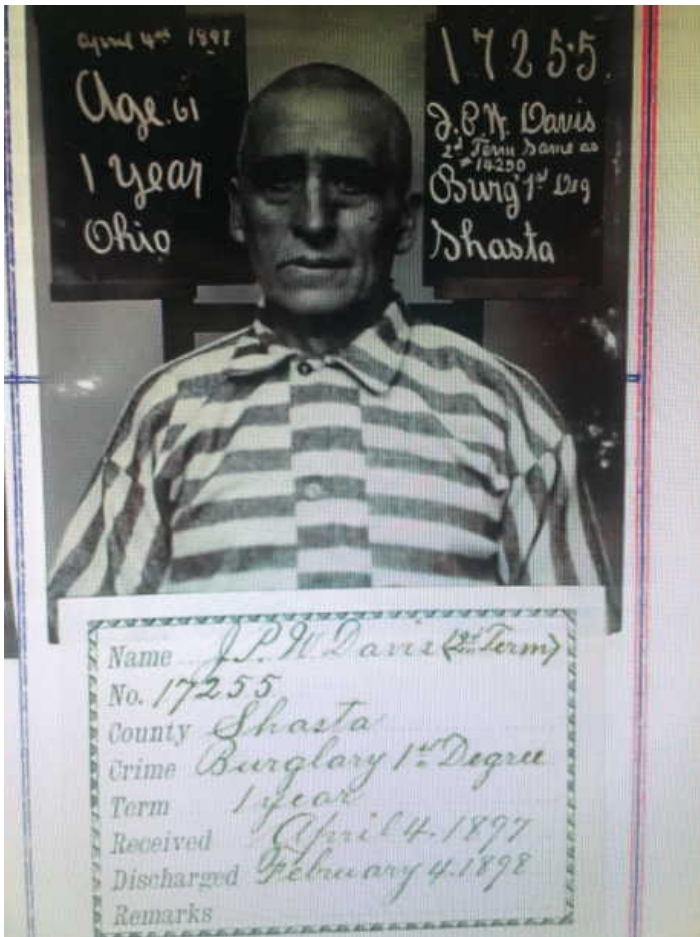 April 4th 1897
Age. 61
1 year
Ohio
17255.
J.P.W. Davis
2d Term Same as
# 14290
Burg 1st Deg
Shasta
Name J.P.W. Davis (2d Term)
No. 17255
County Shasta
Crime Burglary 1st Degree
Term 1 year
Received April 4. 1897
Discharged February 4. 1898
Remarks